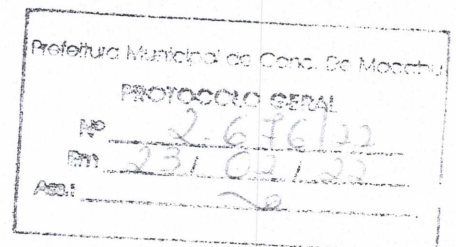 Prefeitura Municipal de Conc. De Macabu
PROTOCOLO GERAL
Nº 2.676/22
Em 23/02/22
Ass.: